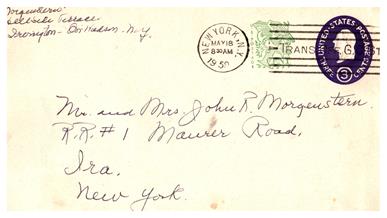 Morgenstern
Terrace
Irvington-on-Hudson-N.Y.
NEW YORK, N.Y.
MAY 18
8 30 AM
1950
UNITED STATES POSTAGE
3
THREE CENTS
Mr. and Mrs. John R. Morgenstern.
R.R.#1 Maurer Road.
Ira.
New York.